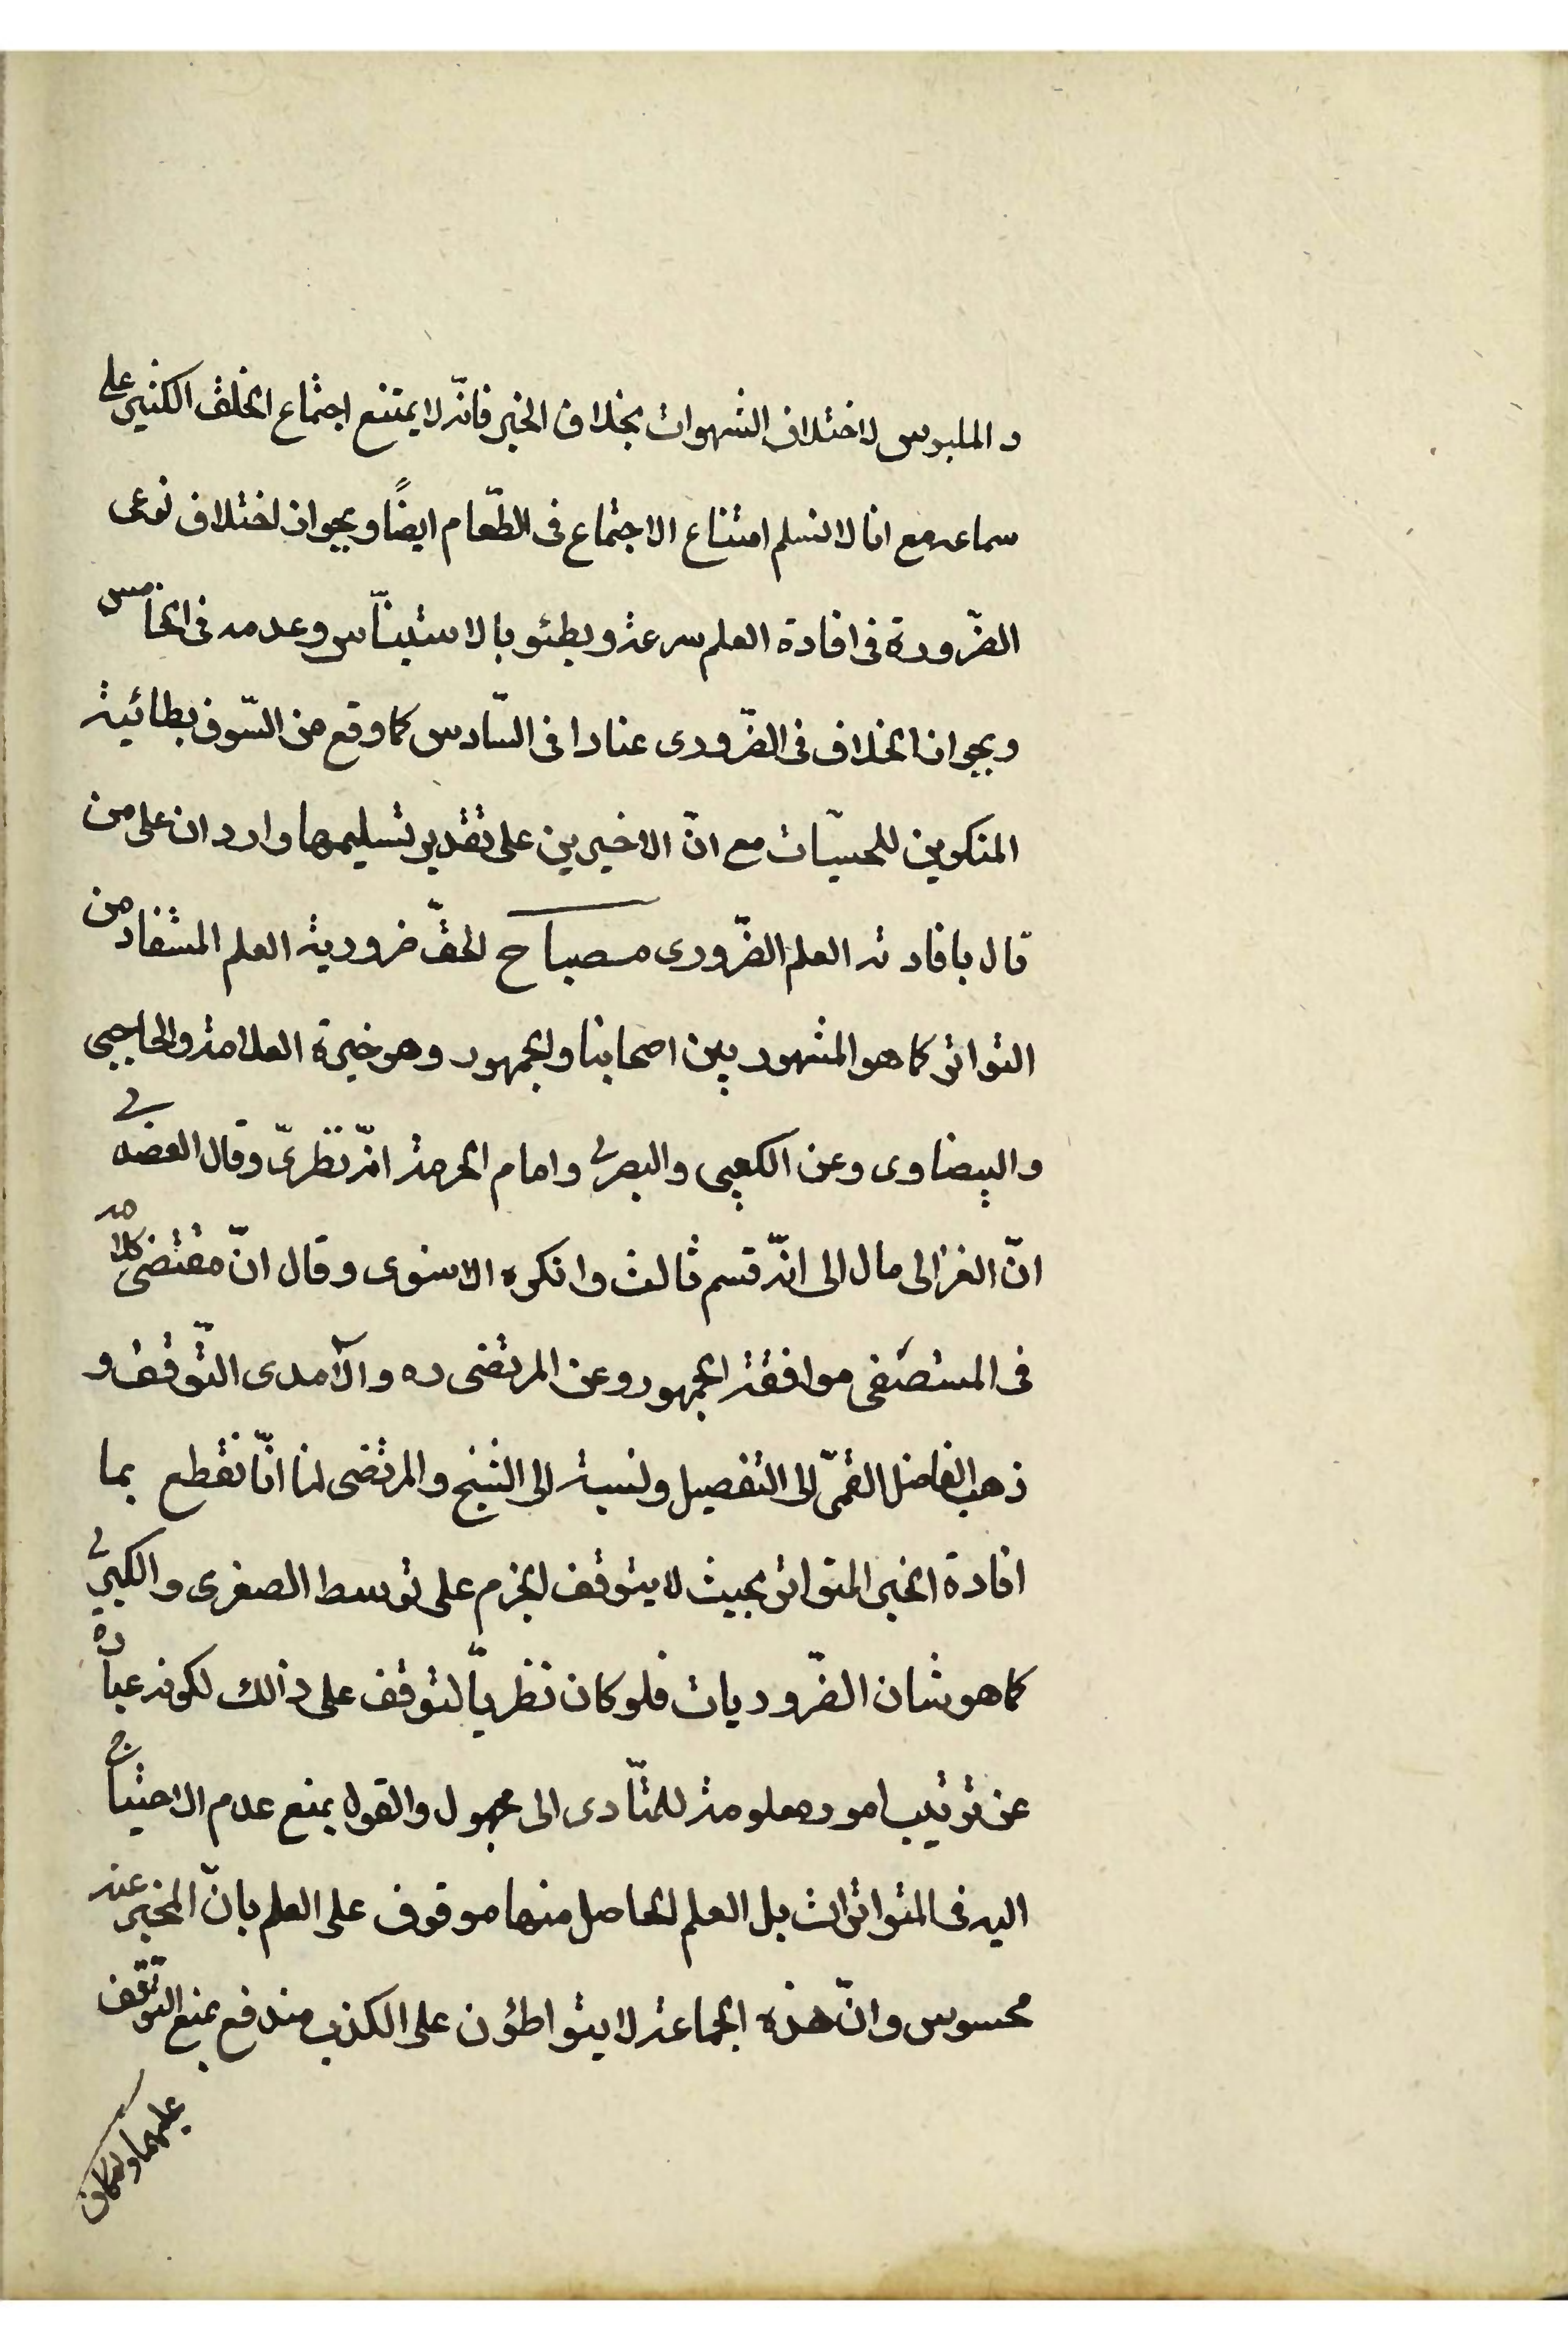 و الملبوس لاختلاف الشهوات بخلاف الخبر فانّه لا يمتنع اجتماع الخلق الكثير على
سماعه مع انا لا نسلم امتناع الاجتماع فى الطّعام ايضًا و بجواز اختلاف نوعى
الضّرورة فى افادة العلم سرعة و بطئو بالاستيناّس و عدمه فى الخامس
و بجواز الخلاف فى الضّرورى عنادا فى السّادس كما وقع من السّوفسطائية
المنكرين للحسيّات مع انّ الاخيرين على تقدير تسليمها واردان على من
قال بافادته العلم الضّرورى مصباح الحقّ ضرورية العلم المستفاد من
التواتر كما هو المشهور بين اصحابنا و الجمهور و هو خيرة العلامة و الحاجبى
و البيضاوى و عن الكعبى و البصرى و امام الحرمة انّه نظرىّ و قال العضدى
انّ الغزالى مال الى انّه قسم ثالث و انكره الاسنوى و قال انّ مقتضى كلامه
فى المستصفى موافقة الجمهور و عن المرتضى ره و الآمدى التّوقف و
ذهب الفاضل القمّى الى التفصيل و نسبة الى الشيخ و المرتضى لنا انّا نقطع بما
افادة الخبر المتواتر بحيث لا يتوقف الجزم على توسط الصغرى و الكبرى
كما هو شان الضّروريات فلو كان نظريّا لتوقف على ذالك لكونه عبارة
عن ترتيب امور معلومة للتّادى الى مجهول و القول بمنع عدم الاحتياج
اليه فى المتواترات بل العلم الحاصل منها موقوف على العلم بانّ المخبر عنه
محسوس و انّ هذه الجماعة لا يتواطئون على الكذب مندفع بمنع التّوقف
عليهما و لو كان